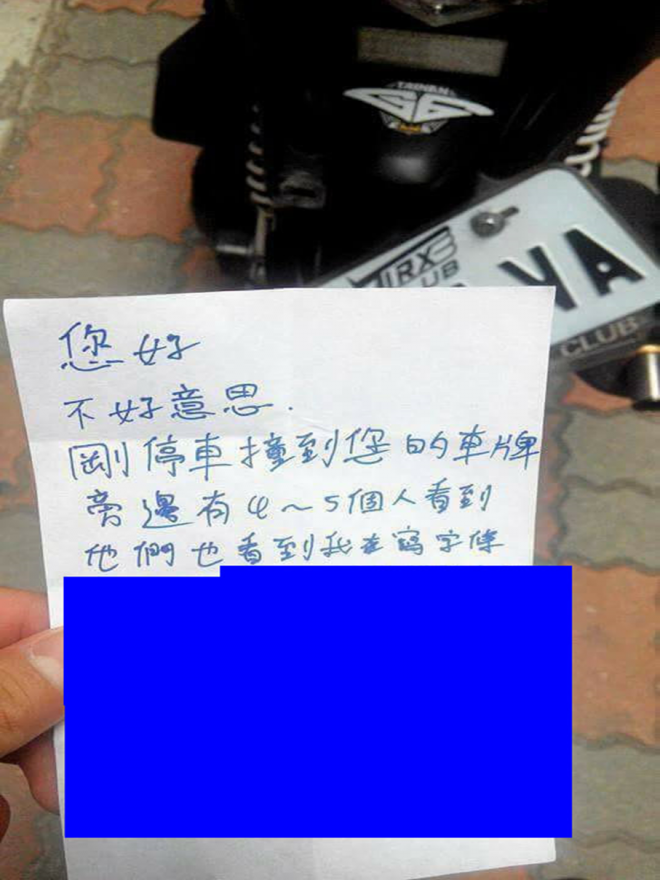 TAINAN
G6
TIRX3
CLUB
VA
CLUB
您好
不好意思.
剛停車撞到您的車牌
旁邊有4~5個人看到
他們也看到我在寫字條